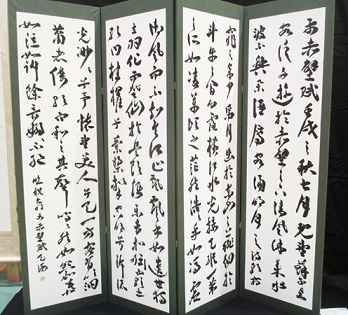 前赤壁賦壬戌之秋七月既望蘇子與
客泛舟遊於赤壁之下清風徐來水
波不興舉酒屬客誦明月之詩歌
窈窕之章少焉月出於東山之上徘徊於
斗牛之間白露橫江水光接天縱一葦
之所如凌萬頃之茫然浩浩乎如馮虛
御風而不知其所止飄飄乎如遺世獨
立羽化而登仙於是飲酒樂甚扣舷而
歌之歌曰桂棹兮蘭槳擊空明兮泝流
光渺渺兮予懷望美人兮天一方客有吹洞
簫者倚歌而和之其聲嗚嗚然如怨如慕
如泣如訴餘音嫋嫋不絕
赤壁賦